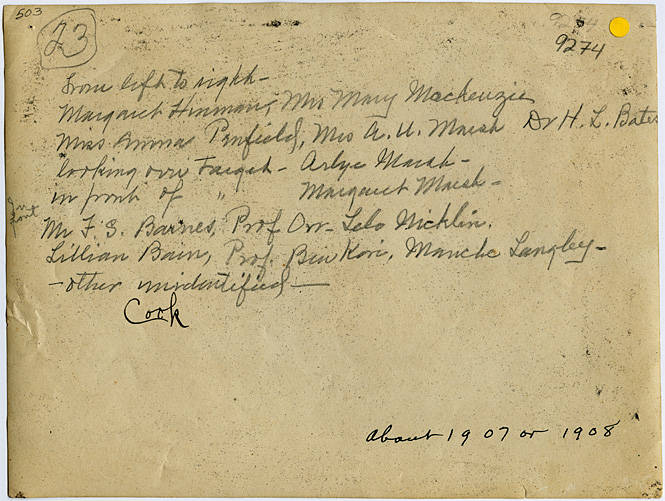 503
23
9274
9274
From left to right -
Margaret Hinman, Mrs Mary Mackenzie
Miss Anna Penfield, Mrs A. U. Marsh Dr H. L. Bates
looking over Faucet - Arlye Marsh -
in front of " Margaret Marsh -
In front
Mr F. S. Barnes, Prof Orr - Lelo Nicklin,
Lillian Bain, Prof. Ben Kori, Manche Langley -
- other unidentified -
Cook
About 1907 or 1908